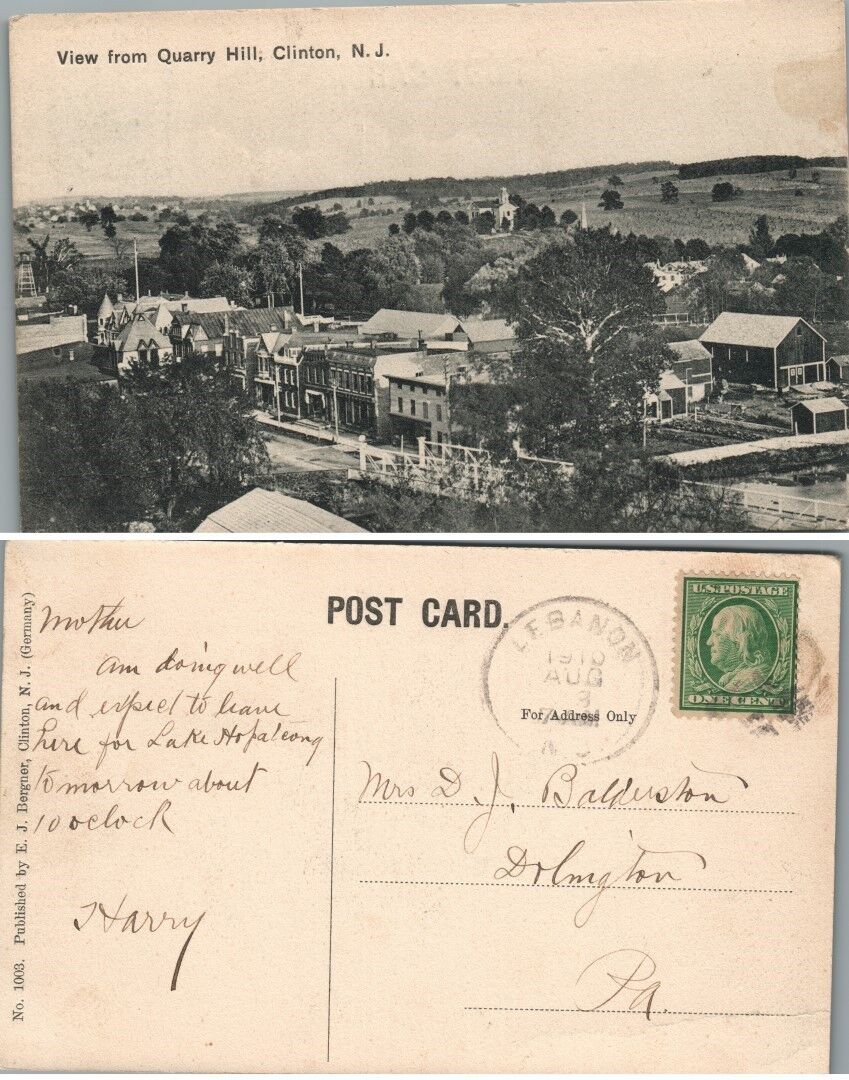 View from Quarry Hill, Clinton, N. J.
No. 1003. Published by E. J. Bergner, Clinton, N. J. (Germany)
POST CARD.
Mother
am doing well
and expect to leave
here for Lake Hopatcong
tomorrow about
10 oclock
Harry
LEBANON
1910
AUG
3
7 AM
N. J.
U.S. POSTAGE
ONE CENT
For Address Only
Mrs D. J. Balderston
Dolington
Pa.